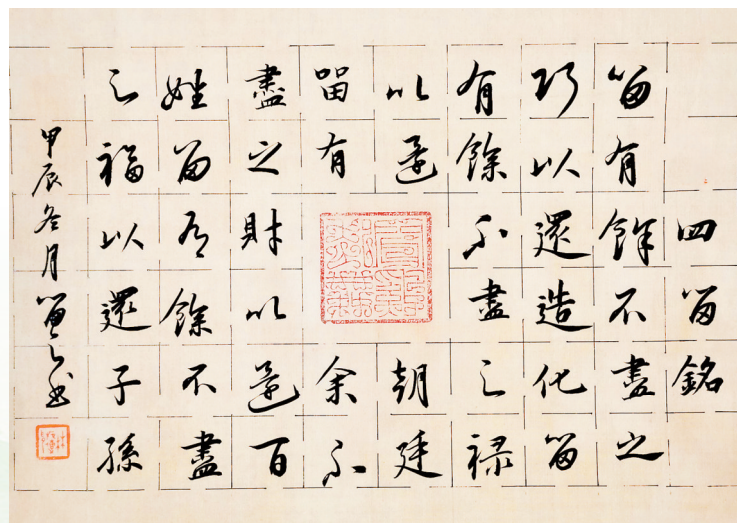 四畱銘
畱有餘不盡之
巧以還造化畱
有餘不盡之禄
以還朝廷
畱有余不
盡之財以還百
姓畱有餘不盡
之福以還子孫
甲辰冬月